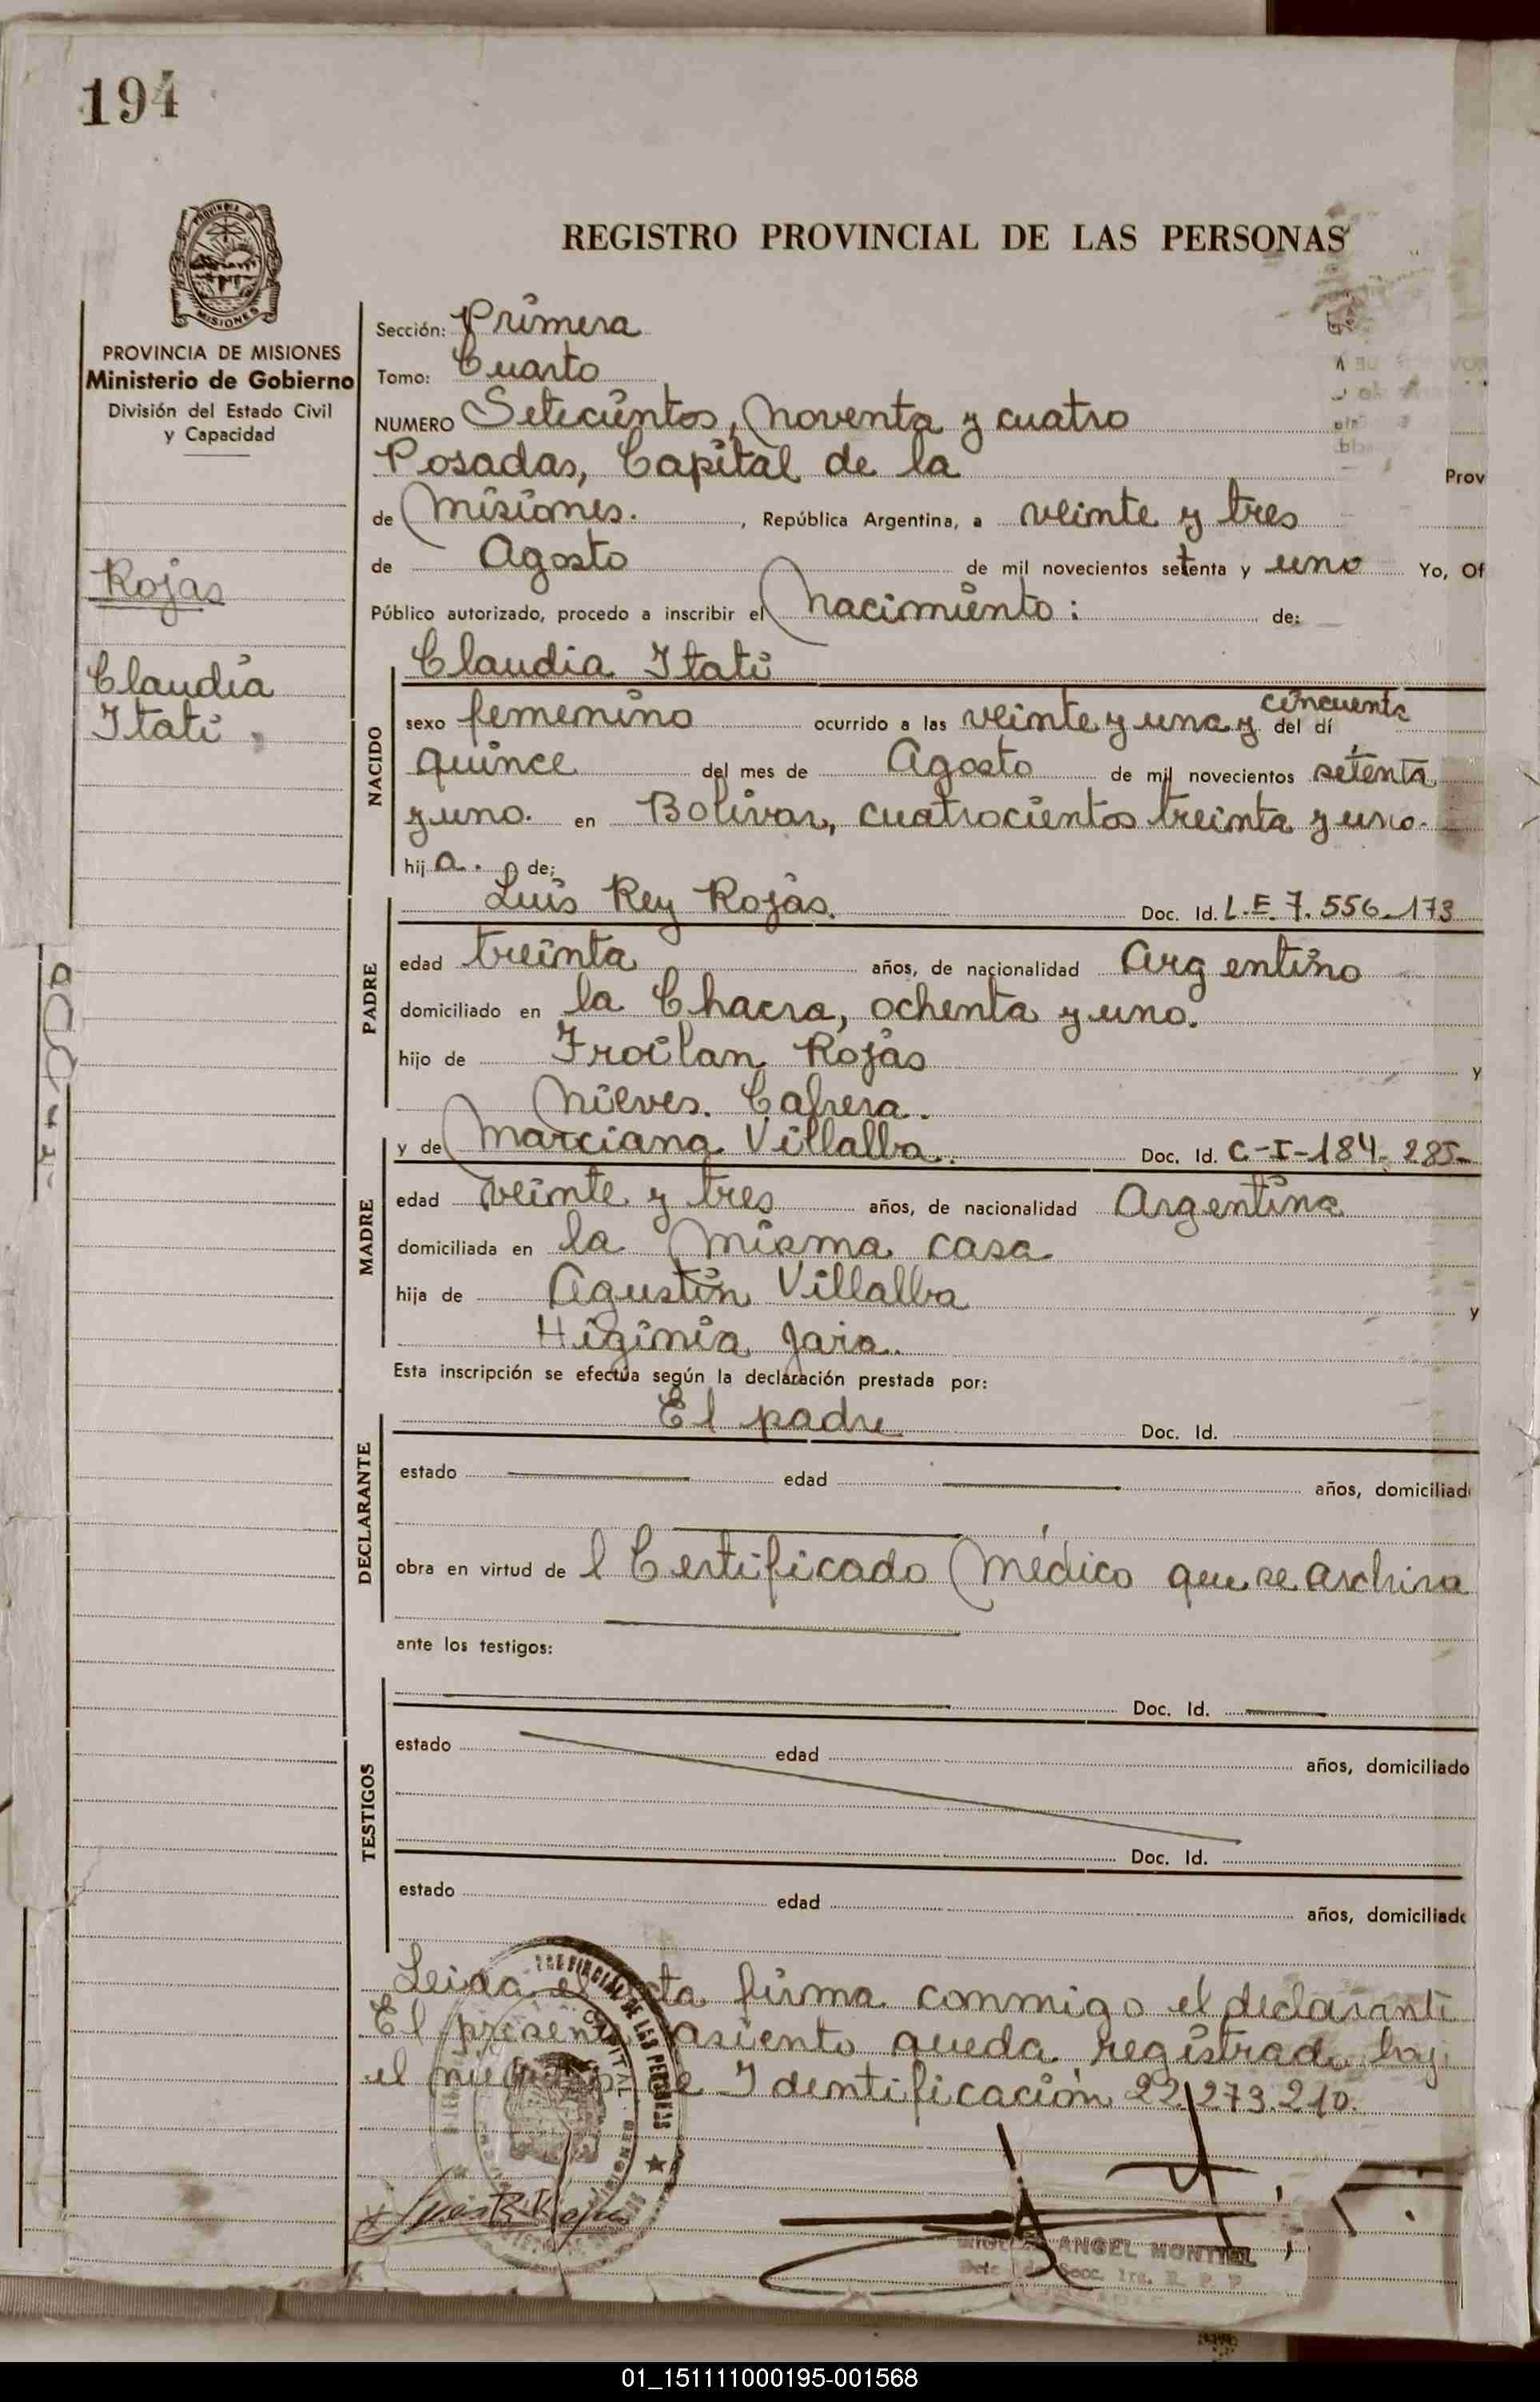 194
PROVINCIA DE MISIONES
MISIONES
PROVINCIA DE MISIONES
Ministerio de Gobierno
División del Estado Civil
y Capacidad
Rojas
Claudia
Itati
REGISTRO PROVINCIAL DE LAS PERSONAS
Sección: Primera
Tomo: Cuarto
NUMERO Setecientos, Noventa y cuatro
Posadas, Capital de la Prov
de Misiones. , República Argentina, a veinte y tres
de Agosto de mil novecientos setenta y uno Yo, Of
Público autorizado, procedo a inscribir el Nacimiento: de:
Claudia Itati
NACIDO
sexo femenino ocurrido a las veinte y una y cincuenta del dí
quince del mes de Agosto de mil novecientos setenta
y uno. en Bolivar, cuatrocientos treinta y uno.
hij a. de;
PADRE
Luis Rey Rojas. Doc. Id. L.E. 7.556-173
edad treinta años, de nacionalidad Argentino
domiciliado en la Chacra, ochenta y uno.
hijo de Froilan Rojas y
Nieves. Cabrera.
MADRE
y de Marciana Villalba. Doc. Id. C-I-184-285-
edad veinte y tres años, de nacionalidad Argentina
domiciliada en la misma casa
hija de Agustin Villalba y
Higinia Jara.
Esta inscripción se efectúa según la declaración prestada por:
DECLARANTE
El padre Doc. Id.
estado edad años, domiciliad
obra en virtud de l Certificado Médico que se archiva
ante los testigos:
TESTIGOS
Doc. Id.
estado edad años, domiciliado
Doc. Id.
estado edad años, domiciliado
Leida el acta firma conmigo el declarante
El presente asiento queda registrado baj
el numero de Identificación 22.273.210.
PROVINCIAL DE LAS PERSONAS
CAPITAL
Luis R. Rojas
ANGEL MONTIEL
Secc. 1ra. R. P. P.
01_151111000195-001568